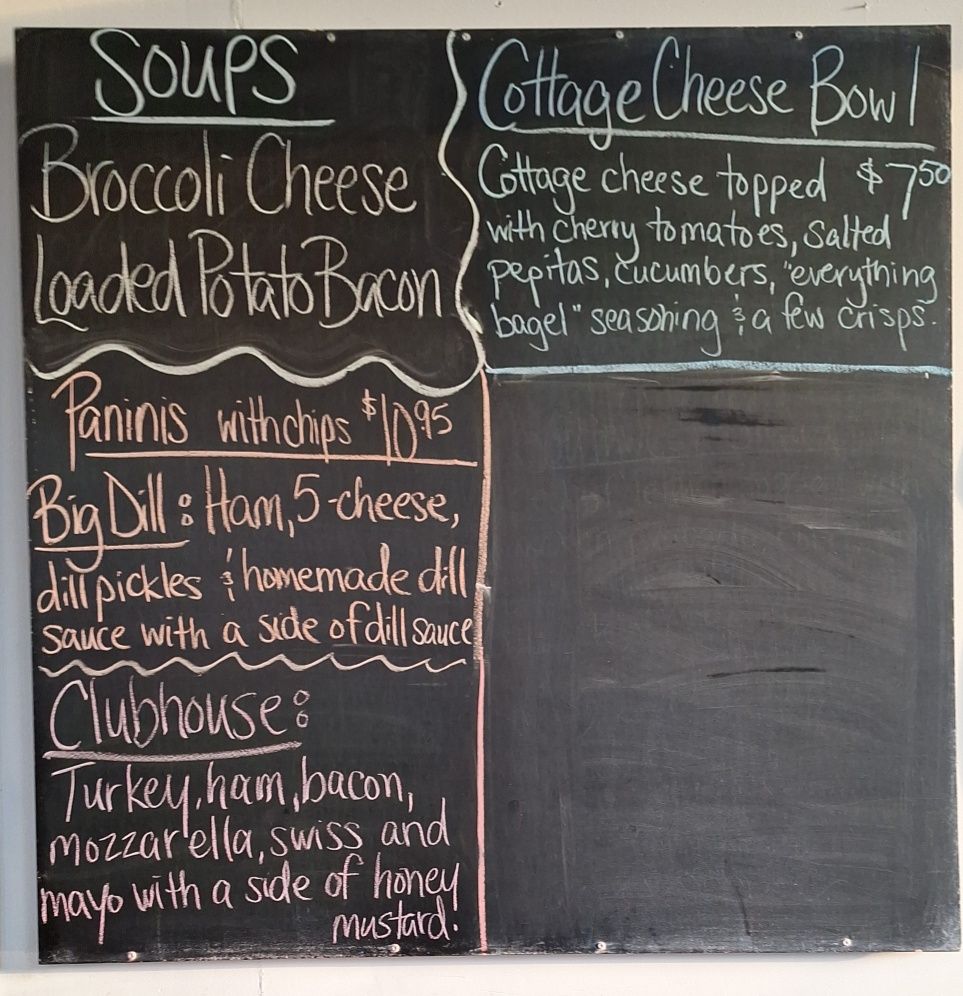 Soups
Broccoli Cheese
Loaded Potato Bacon
Paninis with chips $10.95
Big Dill: Ham, 5-cheese,
dill pickles & homemade dill
sauce with a side of dill sauce
Clubhouse:
Turkey, ham, bacon,
mozzarella, swiss and
mayo with a side of honey
mustard.
Cottage Cheese Bowl
Cottage cheese topped $7.50
with cherry tomatoes, salted
pepitas, cucumbers, "everything
bagel" seasoning & a few crisps.